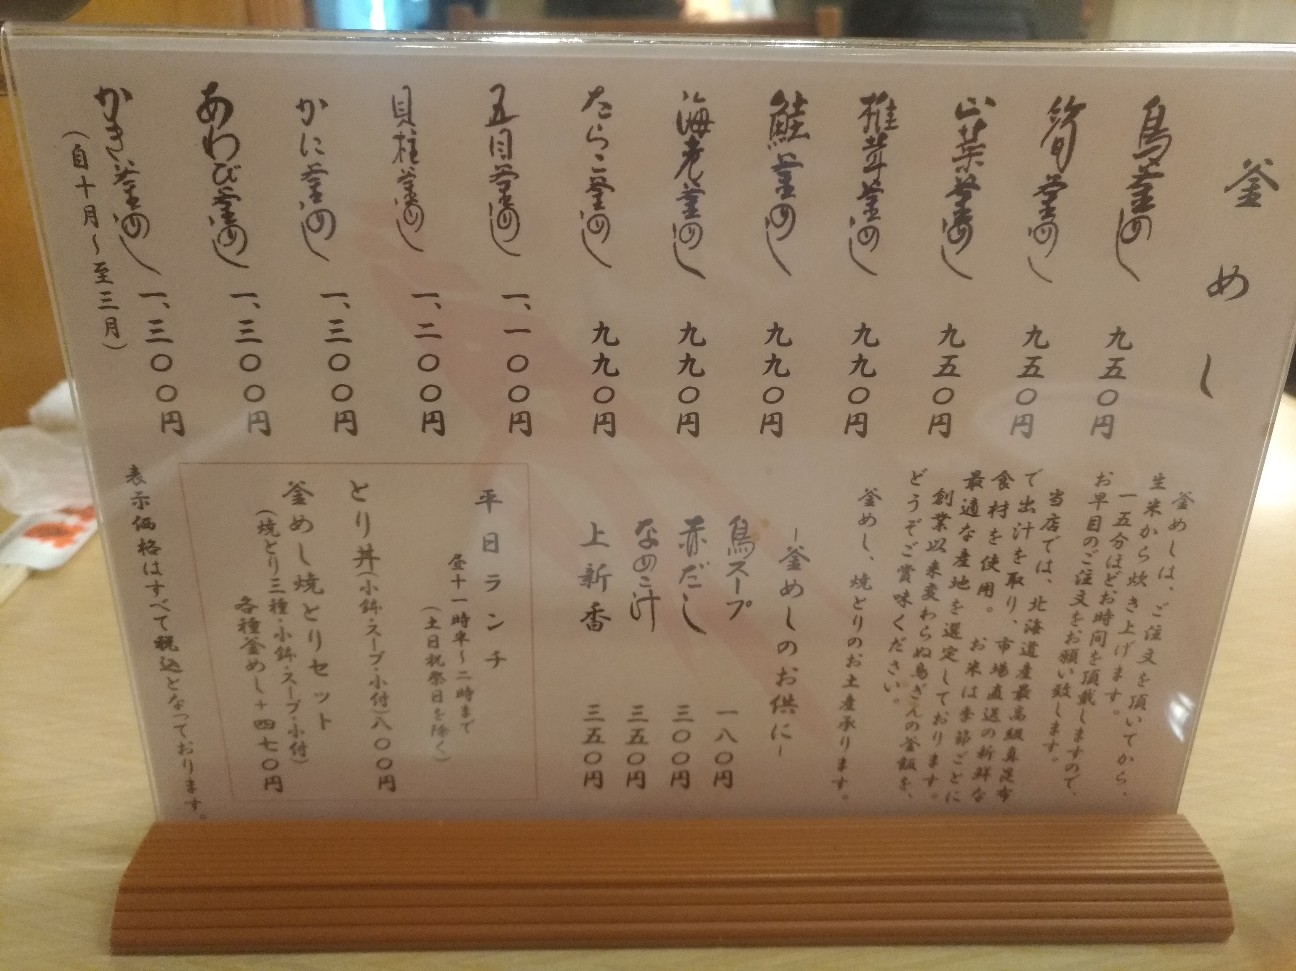 釜めし
鳥釜めし 九五〇円
筍釜めし 九五〇円
山菜釜めし 九五〇円
椎茸釜めし 九九〇円
鮭釜めし 九九〇円
海老釜めし 九九〇円
たらこ釜めし 九九〇円
五目釜めし 一、一〇〇円
貝柱釜めし 一、二〇〇円
かに釜めし 一、三〇〇円
あわび釜めし 一、三〇〇円
かき釜めし 一、三〇〇円
(自十月～至三月)
釜めしは、ご注文を頂いてから、
生米から炊き上げます。
一五分ほどお時間を頂戴しますので、
お早目のご注文をお願い致します。
当店では、北海道産最高級真昆布
で出汁を取り、市場直送の新鮮な
食材を使用。お米は季節ごとに
最適な産地を選定しております。
創業以来変わらぬ鳥ぎんの釜飯を、
どうぞご賞味ください。
釜めし、焼とりのお土産承ります。
－釜めしのお供に－
鳥スープ 一八〇円
赤だし 三〇〇円
なめこ汁 三五〇円
上新香 三五〇円
平日ランチ
昼十一時半～二時まで
(土日祝祭日を除く)
とり丼(小鉢・スープ・小付)八〇〇円
釜めし焼とりセット
(焼とり三種・小鉢・スープ・小付)
各種釜めし＋四七〇円
表示価格はすべて税込となっております。